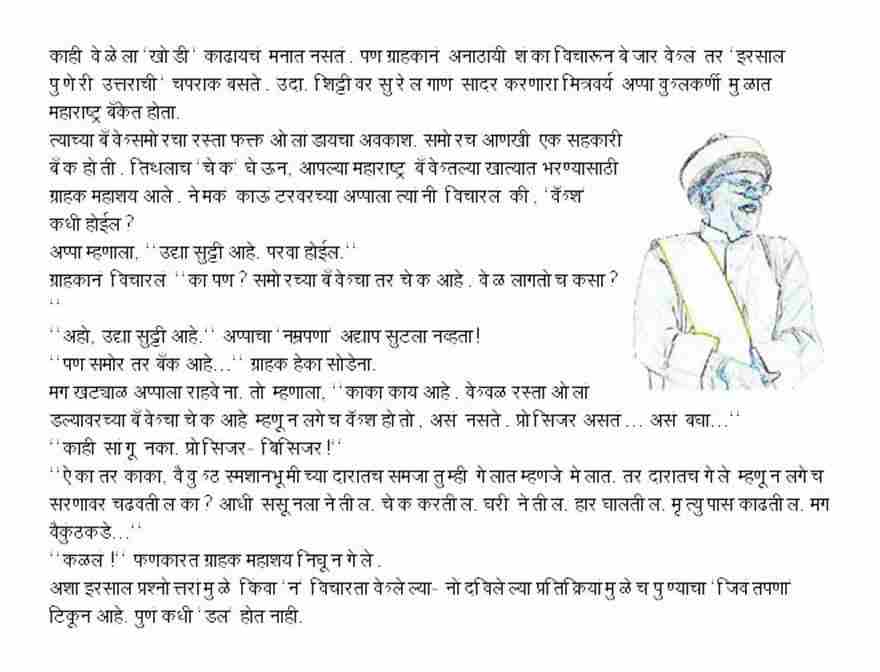 काही वेळेला 'खोडी' काढायचं मनात नसतं. पण ग्राहकानं अनाठायी शंका विचारून बेजार केलं तर 'इरसाल
पुणेरी उत्तराची' चपराक बसते. उदा. शिट्टीवर सुरेल गाणं सादर करणारा मित्रवर्य अप्पा कुलकर्णी मुळात
महाराष्ट्र बँकेत होता.
त्याच्या बँकेसमोरचा रस्ता फक्त ओलांडायचा अवकाश. समोरच आणखी एक सहकारी
बँक होती. तिथलाच 'चेक' घेऊन, आपल्या महाराष्ट्र बँकेतल्या खात्यात भरण्यासाठी
ग्राहक महाशय आले. नेमकं काऊंटरवरच्या अप्पाला त्यांनी विचारलं की, 'कॅश'
कधी होईल?
अप्पा म्हणाला, ''उद्या सुट्टी आहे. परवा होईल.''
ग्राहकानं विचारलं ''का पण? समोरच्या बँकेचा तर चेक आहे. वेळ लागतोच कसा?
''
''अहो, उद्या सुट्टी आहे.'' अप्पाचा 'नम्रपणा' अद्याप सुटला नव्हता!
''पण समोर तर बँक आहे...'' ग्राहक हेका सोडेना.
मग खट्याळ अप्पाला राहवेना. तो म्हणाला, ''काका काय आहे. केवळ रस्ता ओलां
डल्यावरच्या बँकेचा चेक आहे म्हणून लगेच कॅश होतो, असं नसते. प्रोसिजर असतं... असं बघा...''
''काही सांगू नका. प्रोसिजर- बिसिजर!''
''ऐका तर काका, वैकुंठ स्मशानभूमीच्या दारातच समजा तुम्ही गेलात म्हणजे मेलात. तर दारातच गेले म्हणून लगेच
सरणावर चढवतील का? आधी ससूनला नेतील. चेक करतील. घरी नेतील. हार घालतील. मृत्युपास काढतील. मग
वैकुंठकडे...''
''कळलं!'' फणकारत ग्राहक महाशय निघून गेले.
अशा इरसाल प्रश्नोत्तरांमुळे किंवा 'न' विचारता केलेल्या- नोंदविलेल्या प्रतिक्रियांमुळेच पुण्याचा 'जिवंतपणा'
टिकून आहे. पुणं कधी 'डल' होत नाही.